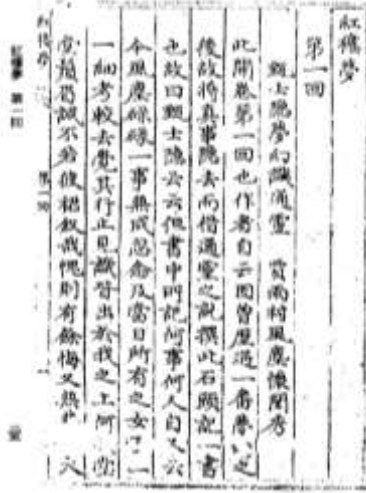 紅樓夢
第一回
甄士隱夢幻識通靈 賈雨村風塵懷閨秀
此開卷第一回也作者自云因曾歷過一番夢幻之
後故將真事隱去而借通靈之說撰此石頭記一書
也故曰甄士隱云云但書中所記何事何人自又云
今風塵碌碌一事無成忽念及當日所有之女子一
一細考較去覺其行止見識皆出於我之上何
堂鬚眉誠不若彼裙釵哉愧則有餘悔又無
紅樓夢 第一回 一
紅樓夢 第一回